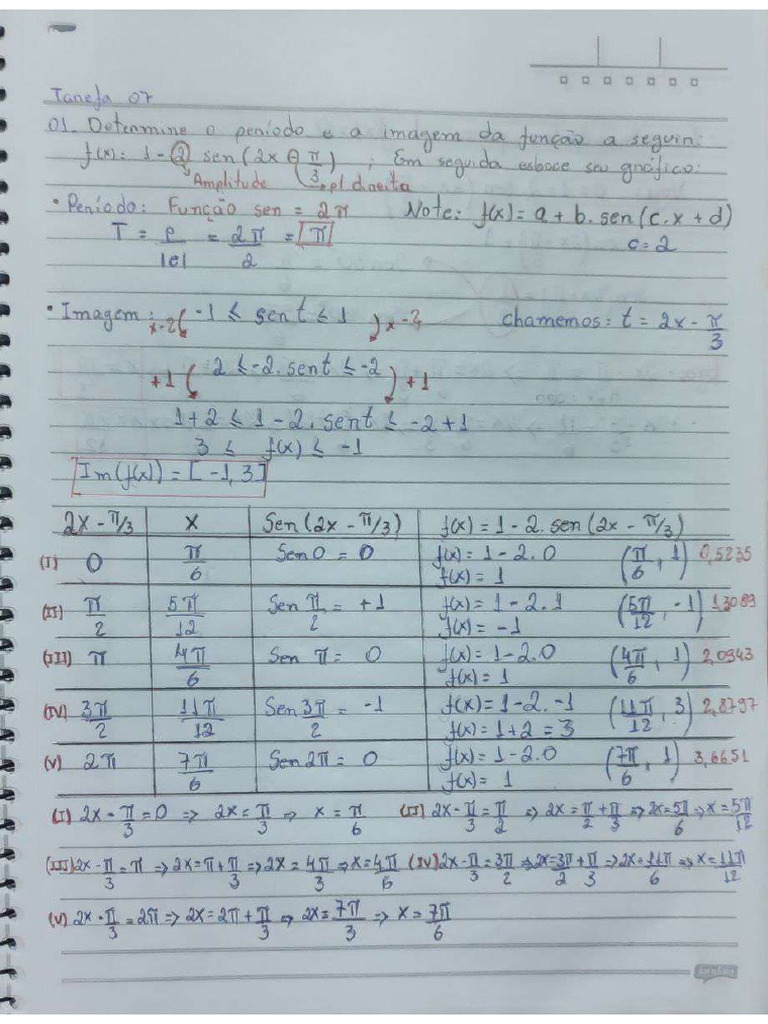 Tarefa 07
01. Determine o período e a imagem da função a seguir:
f(x) = 1 - 2 sen(2x - π/3) ; Em seguida esboce seu gráfico:
Amplitude p/ direita
• Período: Função sen = 2π Note: f(x) = a + b. sen(c.x + d)
T = P/|c| = 2π/2 = π c = 2
• Imagem: x-2 -1 ≤ sen t ≤ 1 x-2 chamemos: t = 2x - π/3
+1 2 ≤ -2. sen t ≤ -2 +1
1+2 ≤ 1 - 2. sen t ≤ -2+1
3 ≤ f(x) ≤ -1
Im(f(x)) = [-1, 3]
2x - π/3 x Sen(2x - π/3) f(x) = 1 - 2. sen(2x - π/3)
(I) 0 π/6 Sen 0 = 0 f(x) = 1 - 2.0 (π/6, 1) 0,5235
f(x) = 1
(II) π/2 5π/12 Sen π/2 = +1 f(x) = 1 - 2.1 (5π/12, -1) 1,3089
f(x) = -1
(III) π 4π/6 Sen π = 0 f(x) = 1 - 2.0 (4π/6, 1) 2,0943
f(x) = 1
(IV) 3π/2 11π/12 Sen 3π/2 = -1 f(x) = 1 - 2. -1 (11π/12, 3) 2,8797
f(x) = 1 + 2 = 3
(V) 2π 7π/6 Sen 2π = 0 f(x) = 1 - 2.0 (7π/6, 1) 3,6651
f(x) = 1
(I) 2x - π/3 = 0 => 2x = π/3 => x = π/6 (II) 2x - π/3 = π/2 => 2x = π/2 + π/3 => 2x = 5π/6 => x = 5π/12
(III) 2x - π/3 = π => 2x = π + π/3 => 2x = 4π/3 => x = 4π/6 (IV) 2x - π/3 = 3π/2 => 2x = 3π/2 + π/3 => 2x = 11π/6 => x = 11π/12
(V) 2x - π/3 = 2π => 2x = 2π + π/3 => 2x = 7π/3 => x = 7π/6